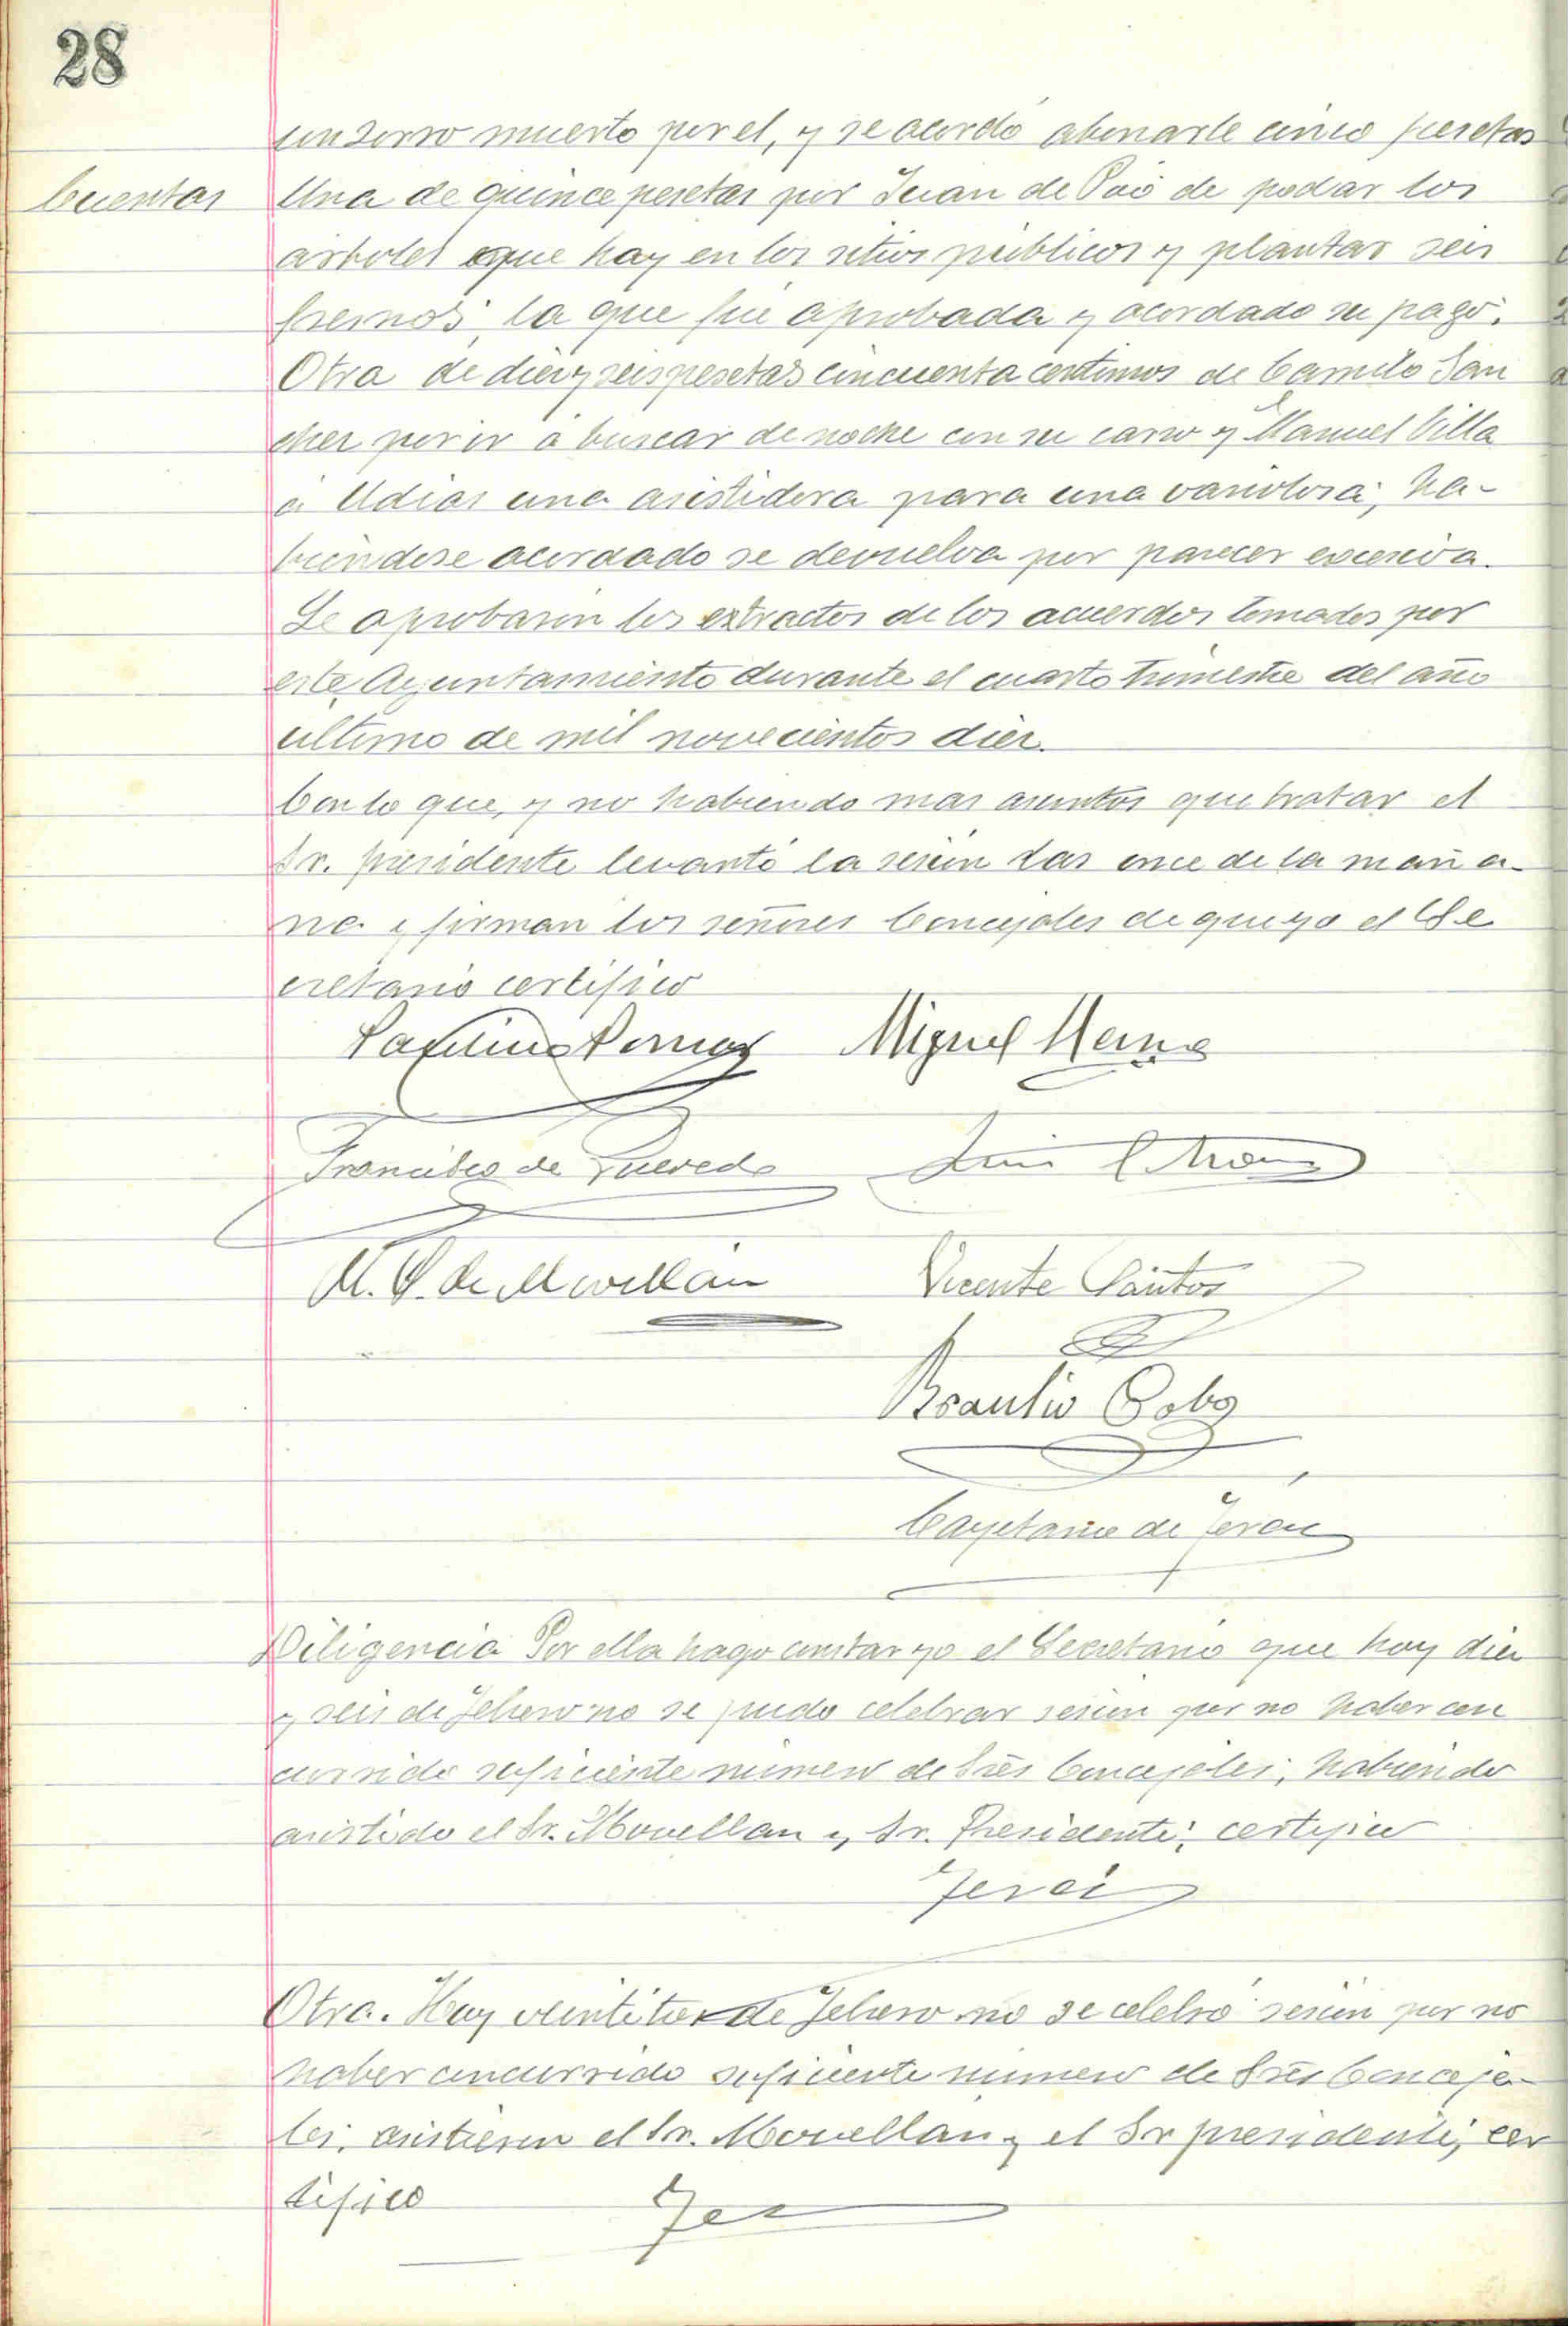 28
un zorro muerto por el, y se acordó abonarle cinco pesetas
Cuentas
Una de quince pesetas por Juan de Poó de podar los
arboles que hay en los sitios públicos y plantar seis
fresnos; la que fué aprobada y acordado su pago.
Otra de diez y seis pesetas cincuenta centimos de Camilo San
chez por ir á buscar de noche con su carro y Manuel Villa
á Udias una asistidora para una variolosa; ha-
biendose acordado se devuelva por parecer excesiva.
Se aprobaron los extractos de los acuerdos tomados por
este Ayuntamiento durante el cuarto trimestre del año
ultimo de mil novecientos diez.
Con lo que, y no habiendo mas asuntos que tratar el
Sr. presidente levantó la sesion las once de la maña-
na y firman los señores Concejales de que yo el Se
cretario certifico
Miguel
Francisco de Quevedo
Luis
M. G. de Movellan
Vicente Santos
Braulio Cobo
Cayetano de Teran
Diligencia Por ella hago constar yo el Secretario que hoy diez
y seis de Febrero no se pudo celebrar sesion por no haber con
currido suficiente numero de Sres Concejales; habiendo
asistido el Sr. Movellan y Sr. Presidente; certifico
Teran
Otra. Hoy veintitres de Febrero no se celebró sesion por no
haber concurrido suficiente numero de Sres Conceja-
les; asistieron el Sr. Movellan y el Sr presidente; cer
tifico
Ter